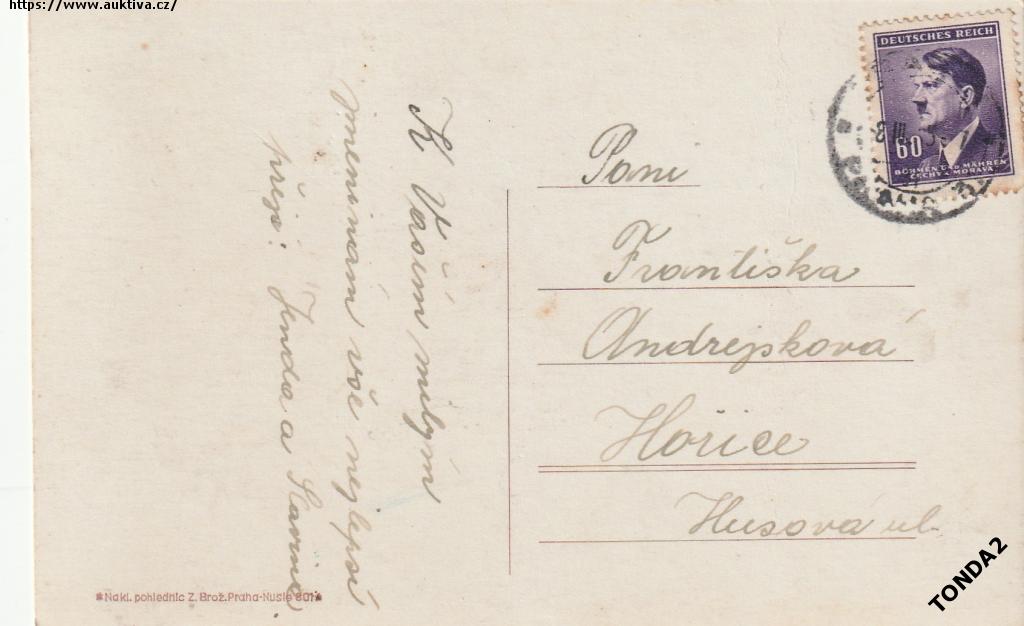 https://www.auktiva.cz/
DEUTSCHES REICH
60
BÖHMEN U. MÄHREN
ČECHY A MORAVA
K Vašim milým
jmeninám vše nejlepší
přejí: Jenda a Slavina
Paní
Františka
Andrejsková
Hořice
Husova ul.
*Nakl. pohlednic Z. Brož, Praha-Nusle 801*
TONDA2